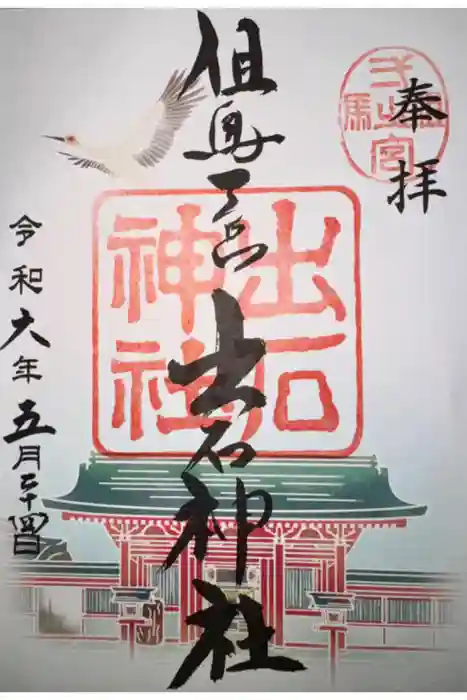 奉拝
但馬一宮
出石神社
出石
神社
令和六年五月二十四日